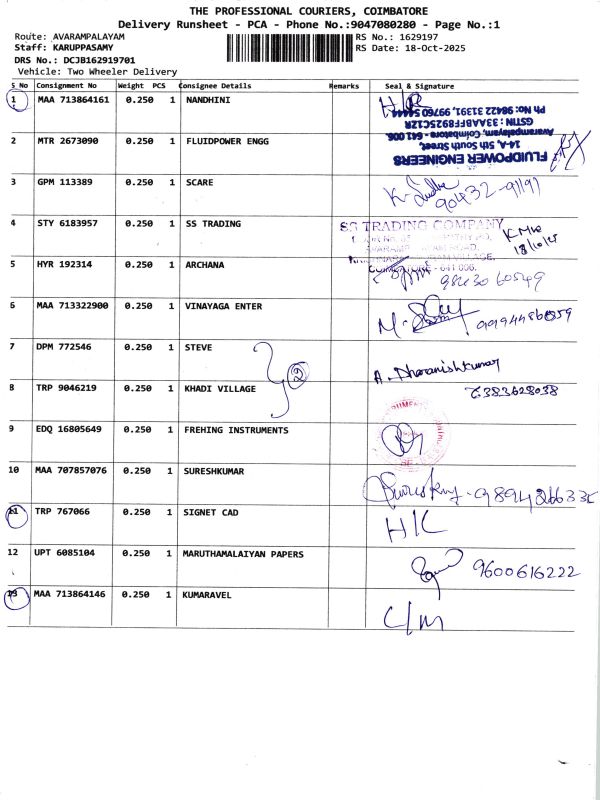 THE PROFESSIONAL COURIERS, COIMBATORE
Delivery Runsheet - PCA - Phone No.:9047080280 - Page No.:1
Route: AVARAMPALAYAM RS No.: 1629197
Staff: KARUPPASAMY RS Date: 18-Oct-2025
DRS No.: DCJB162919701
Vehicle: Two Wheeler Delivery
S No Consignment No Weight PCS Consignee Details Remarks Seal & Signature
1 MAA 713864161 0.250 1 NANDHINI H/K
Ph No: 98422 31391, 99760 54444
GSTIN : 33AABFF8925C1ZR
Avarampalayam, Coimbatore - 641 006.
14-A, 5th South Street,
FLUIDPOWER ENGINEERS
2 MTR 2673090 0.250 1 FLUIDPOWER ENGG
3 GPM 113389 0.250 1 SCARE 90432-91191
4 STY 6183957 0.250 1 SS TRADING SS TRADING COMPANY
18/10/25
COIMBATORE - 641 006.
5 HYR 192314 0.250 1 ARCHANA 98430 60549
6 MAA 713322900 0.250 1 VINAYAGA ENTER
7 DPM 772546 0.250 1 STEVE A. Dharanishkumar
2
8 TRP 9046219 0.250 1 KHADI VILLAGE 6383628038
9 EDQ 16805649 0.250 1 FREHING INSTRUMENTS
10 MAA 707857076 0.250 1 SURESHKUMAR
11 TRP 767066 0.250 1 SIGNET CAD H/K
12 UPT 6085104 0.250 1 MARUTHAMALAIYAN PAPERS 9600616222
13 MAA 713864146 0.250 1 KUMARAVEL C/M